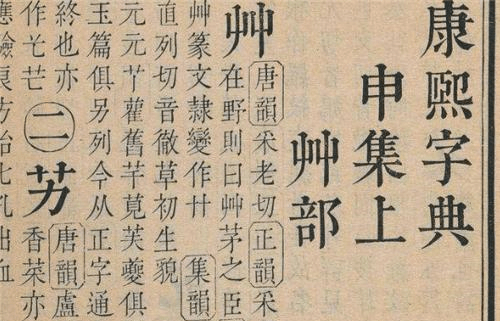 康熙字典
申集上
艸部
艸唐韻采老切正韻采
在野則曰艸茅之臣
艸篆文隷變作艹集韻
直列切音徹草初生貌
雚舊芉莧芙夔俱
玉篇俱另列今从正字通
終也亦
作芒
二
艻唐韻盧
香菜亦
方治七孔出血